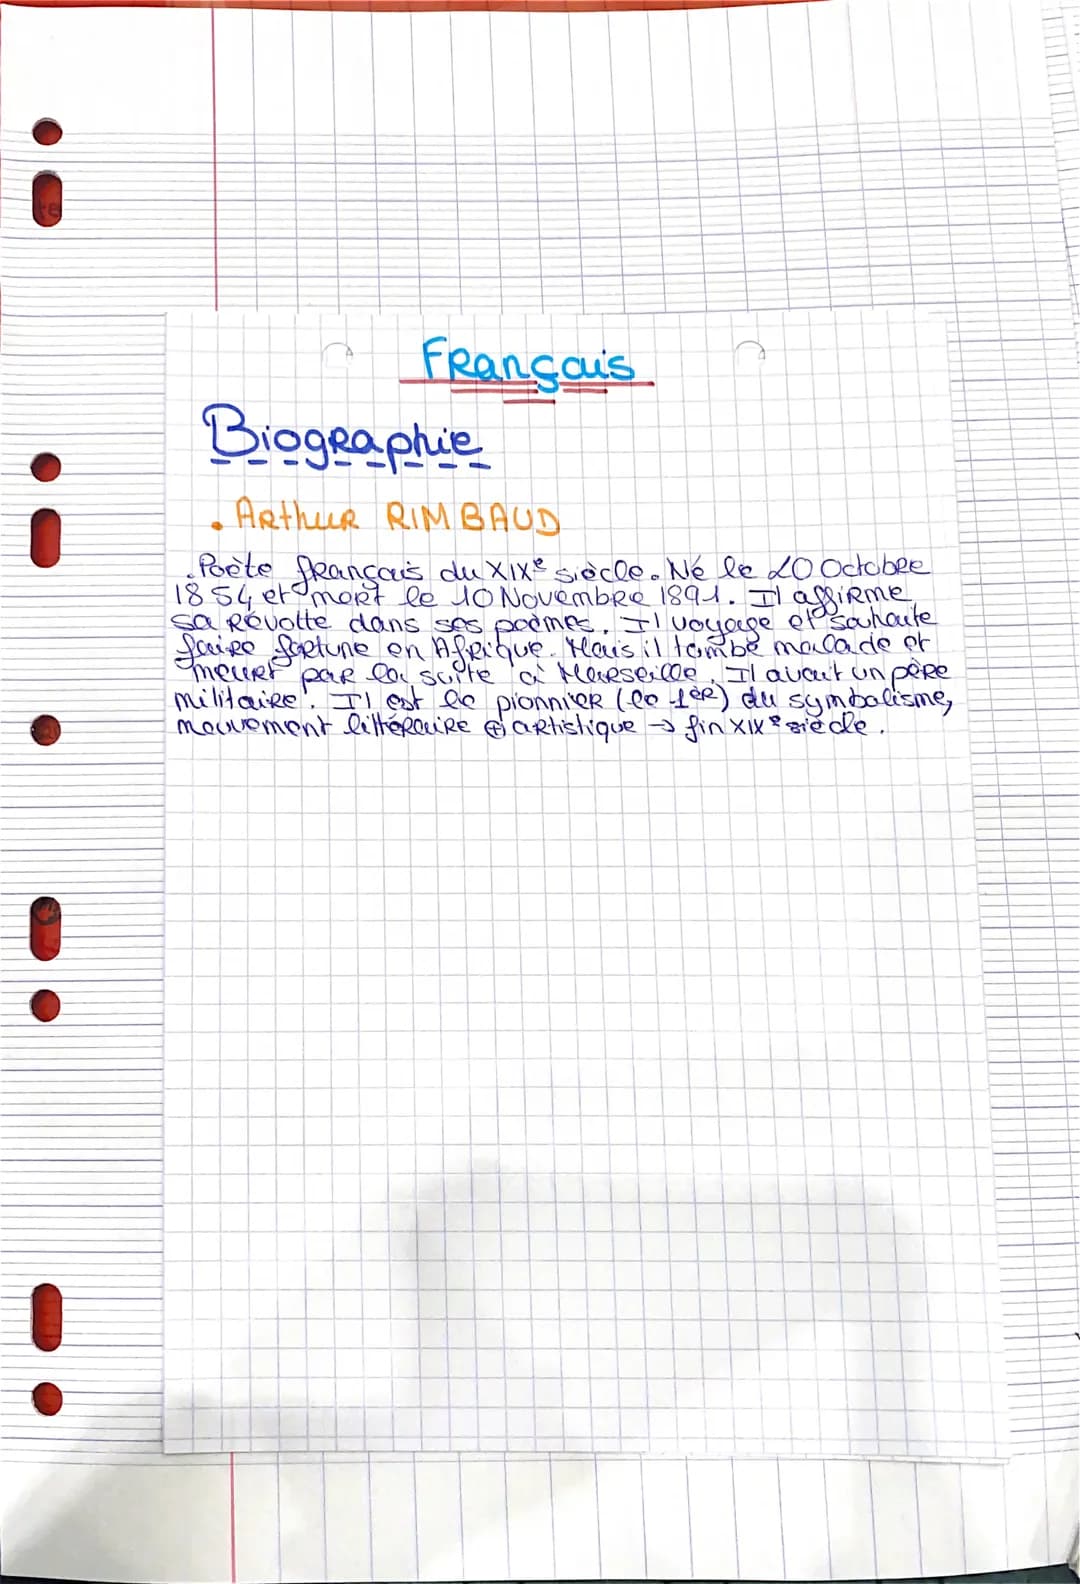 Français
Biographie
• Arthur RIMBAUD
. Poète français du XIXe siècle. Né le 20 Octobre
1854 et mort le 10 Novembre 1891. Il affirme
sa révolte dans ses poèmes. Il voyage et souhaite
faire fortune en Afrique. Mais il tombe malade et
meurt par la suite à Marseille. Il avait un père
militaire. Il est le pionnier (le 1er) du symbolisme,
mouvement littéraire ⊕ artistique → fin XIXe siècle.